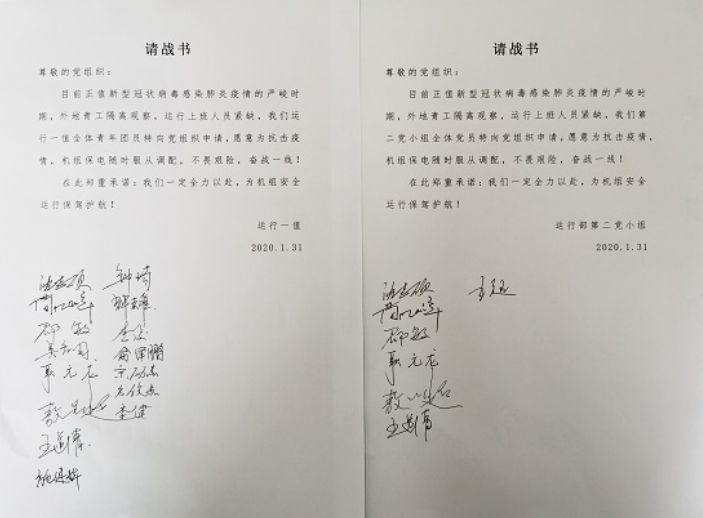 请战书
尊敬的党组织：
目前正值新型冠状病毒感染肺炎疫情的严峻时
期，外地青工隔离观察，运行上班人员紧缺，我们运
行一值全体青年团员特向党组织申请，愿意为抗击疫
情，机组保电随时服从调配，不畏艰险，奋战一线！
在此郑重承诺：我们一定全力以赴，为机组安全
运行保驾护航！
运行一值
2020.1.31
钟琦
邵敏
李健
请战书
尊敬的党组织：
目前正值新型冠状病毒感染肺炎疫情的严峻时
期，外地青工隔离观察，运行上班人员紧缺，我们第
二党小组全体党员特向党组织申请，愿意为抗击疫情，
机组保电随时服从调配，不畏艰险，奋战一线！
在此郑重承诺：我们一定全力以赴，为机组安全
运行保驾护航！
运行部第二党小组
2020.1.31
邵敏